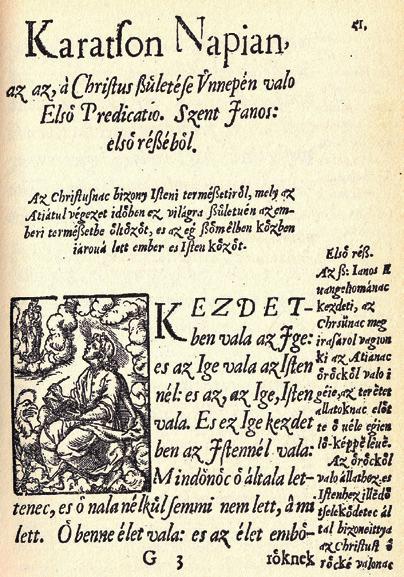 51,
Karatſon Napian,
az az, à Chriſtus ßületéſe V̈nnepén valo
Elsö Predicatio. Szent Janos:
elsö réßéböl.
Az Chriſtuſnac bizony Iſteni termeßetiröl, mely az
Atiátul végezet idöben ez világra ßületuén az em-
beri termeßetbe öltözöt, es az eg ßömelben közben
iárouá lett ember es Iſten közöt.
KEZDET-
ben vala az Jge:
es az Ige vala az Iſten
nél: es az, az Ige, Iſten
vala. Es ez Ige kezdet
ben az Jſtennél vala:
Mindönöc ö általa let-
tenec, es ö nala nélkül ſemmi nem lett, à mi
lett. Ö benne élet vala: es az élet embö-
G 3 röknek
Elsö réß.
Az ß: Ianos E
uangeliománac
kezdeti, az
Chrſtuſnac meg
iraſárol vagion
ki az Atianac
öröcköl valo i
géie, az teretet
állatoknac elöt
te ö uéle egien
lö-képpé léue.
Az öröcköl
valo állathoz es
Iſtenhez illëdö
tſeleködetec ál
tal bizoneittya
az Chriſtuſt ö
röcké valonac